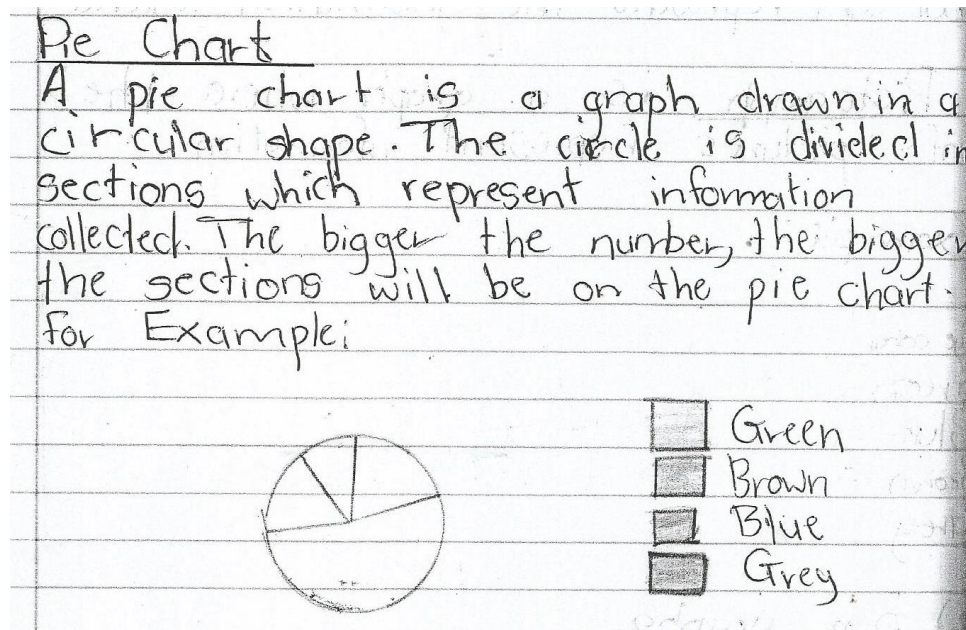 Pie Chart
A pie chart is a graph drawn in a
circular shape. The circle is divided in
sections which represent information
collected. The bigger the number, the bigger
the sections will be on the pie chart.
for Example:
Green
Brown
Blue
Grey